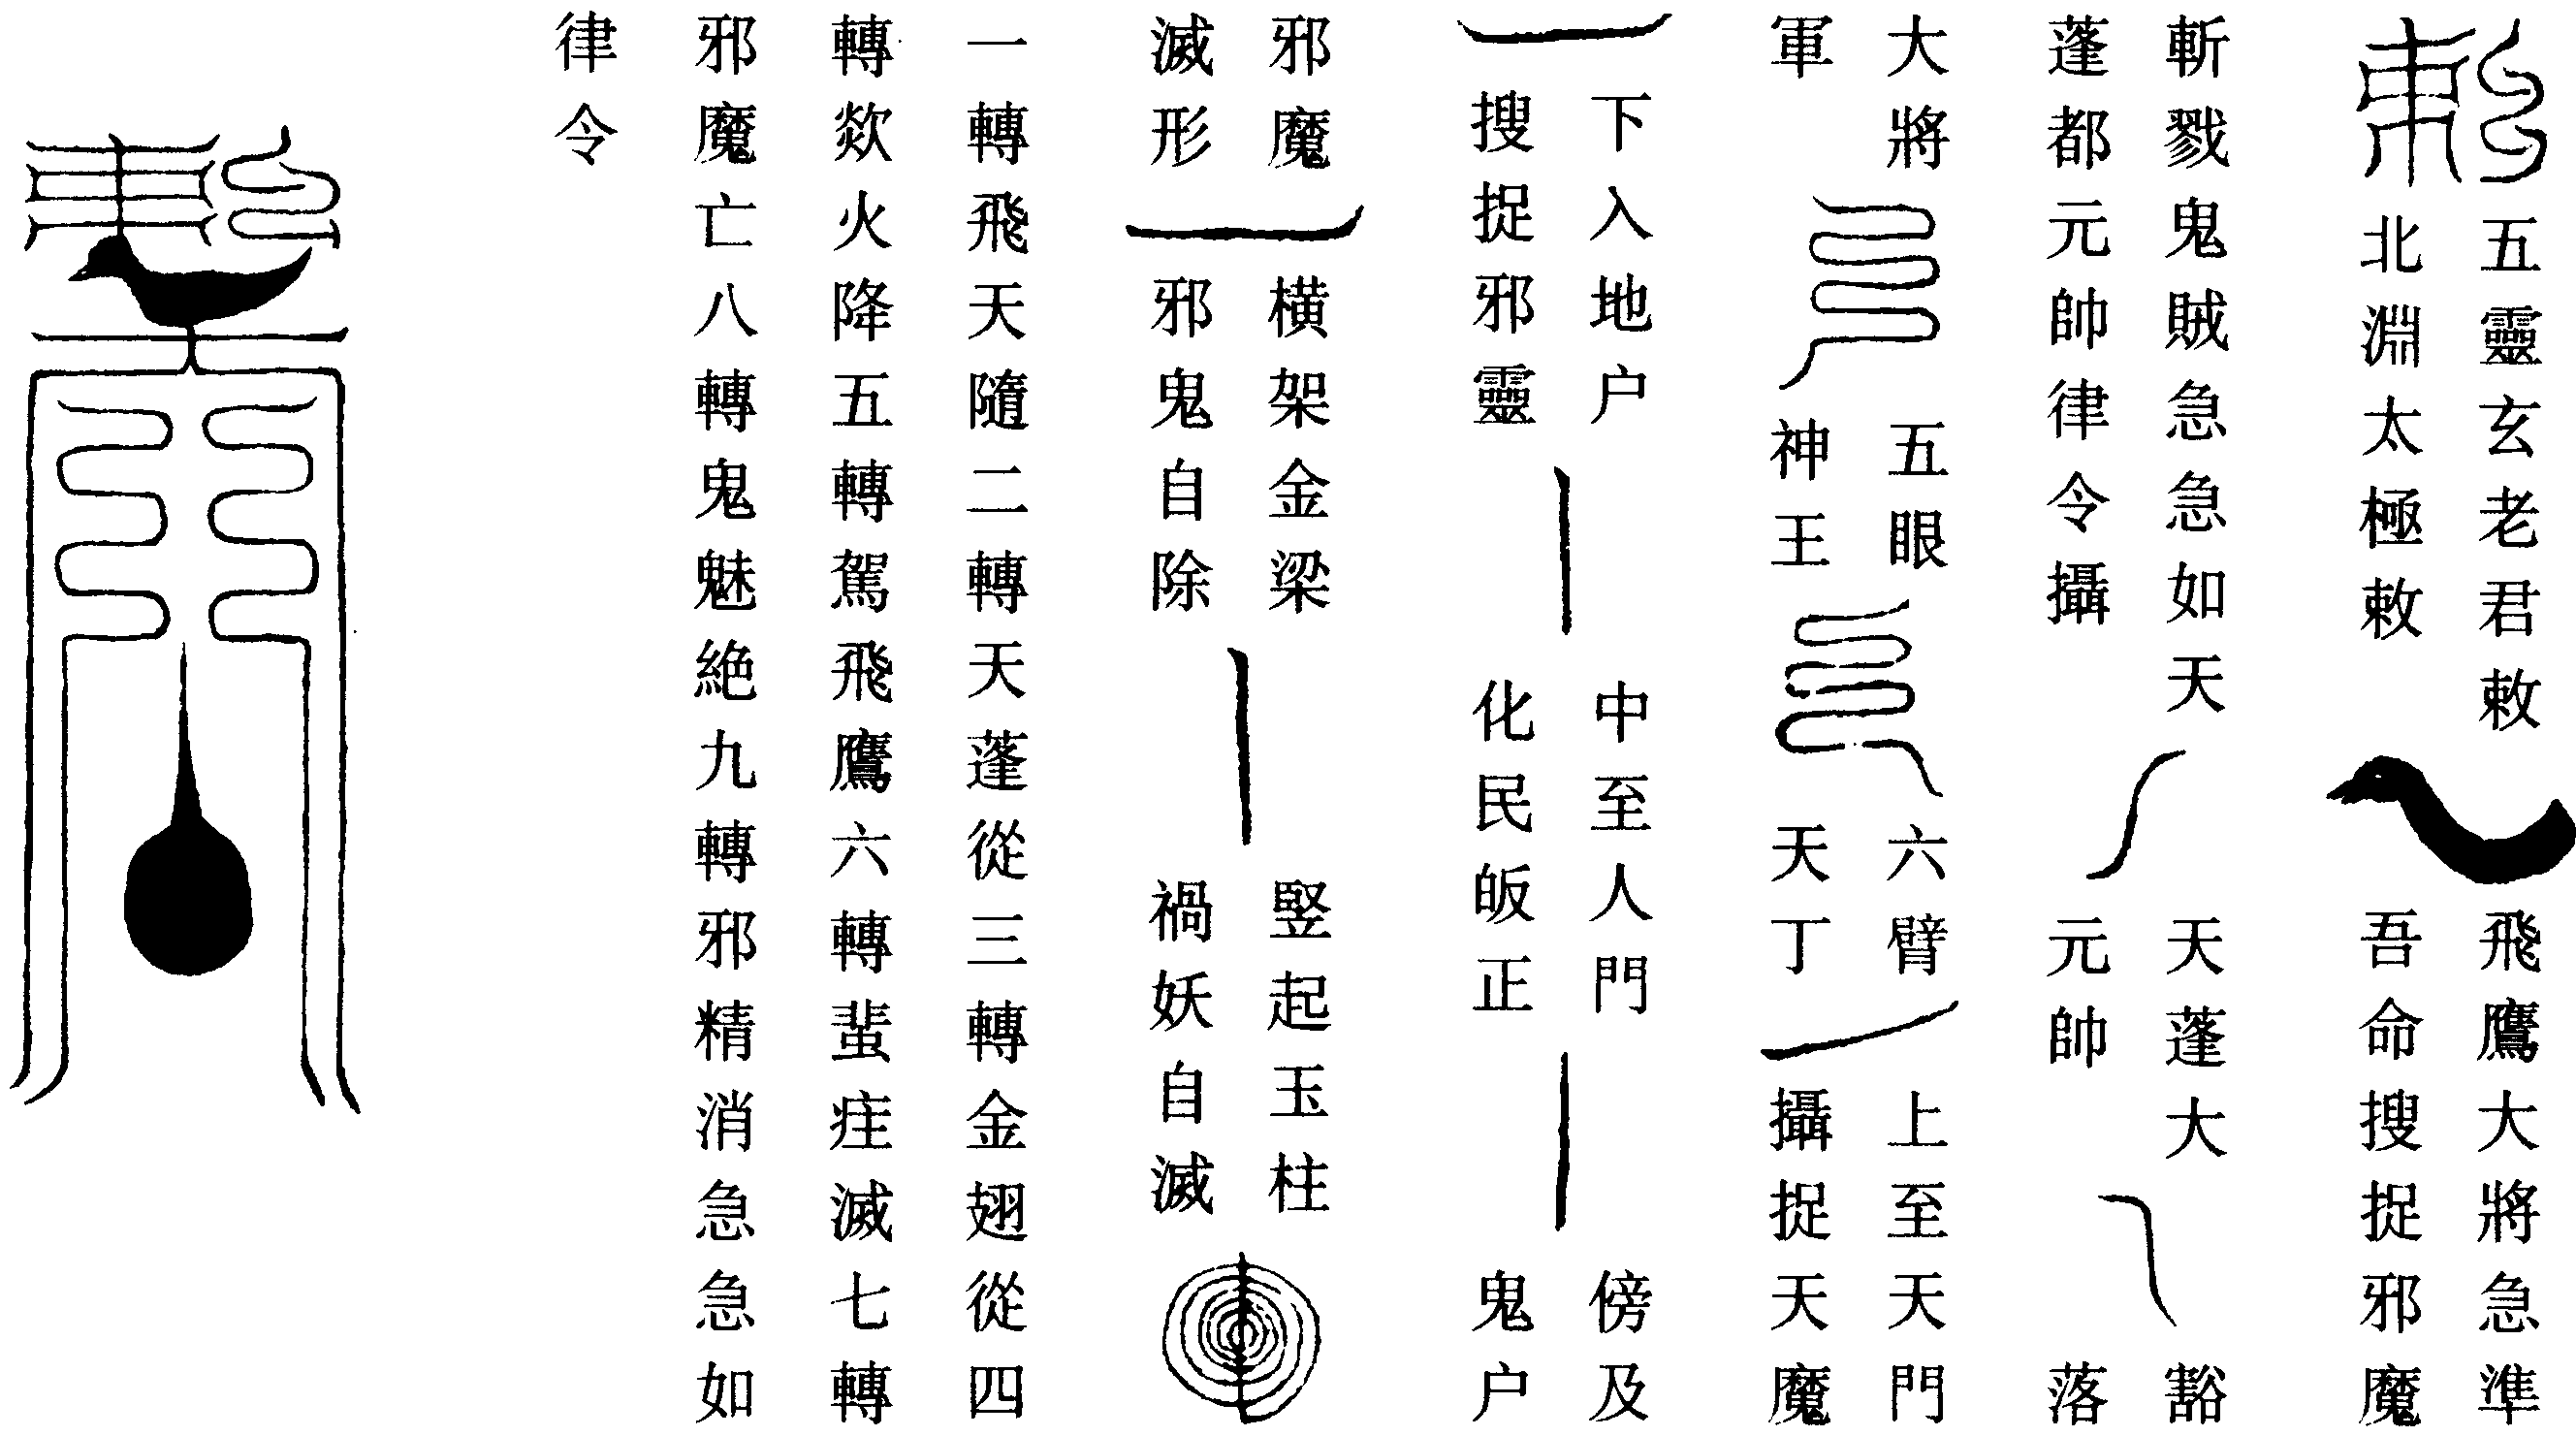 五靈玄老君敕
北淵太極敕
飛鷹大將急準
吾命搜捉邪魔
斬戮鬼賊急急如天
蓬都元帥律令攝
天蓬大
元帥
豁
落
大將
軍
五眼
神王
六臂
天丁
上至天門
攝捉天魔
下入地户
搜捉邪靈
中至人門
化民皈正
傍及
鬼户
邪魔
滅形
横架金梁
邪鬼自除
竪起玉柱
禍妖自滅
一轉飛天隨二轉天蓬從三轉金翅從四
轉欻火降五轉駕飛鷹六轉蜚疰滅七轉
邪魔亡八轉鬼魅絶九轉邪精消急急如
律令